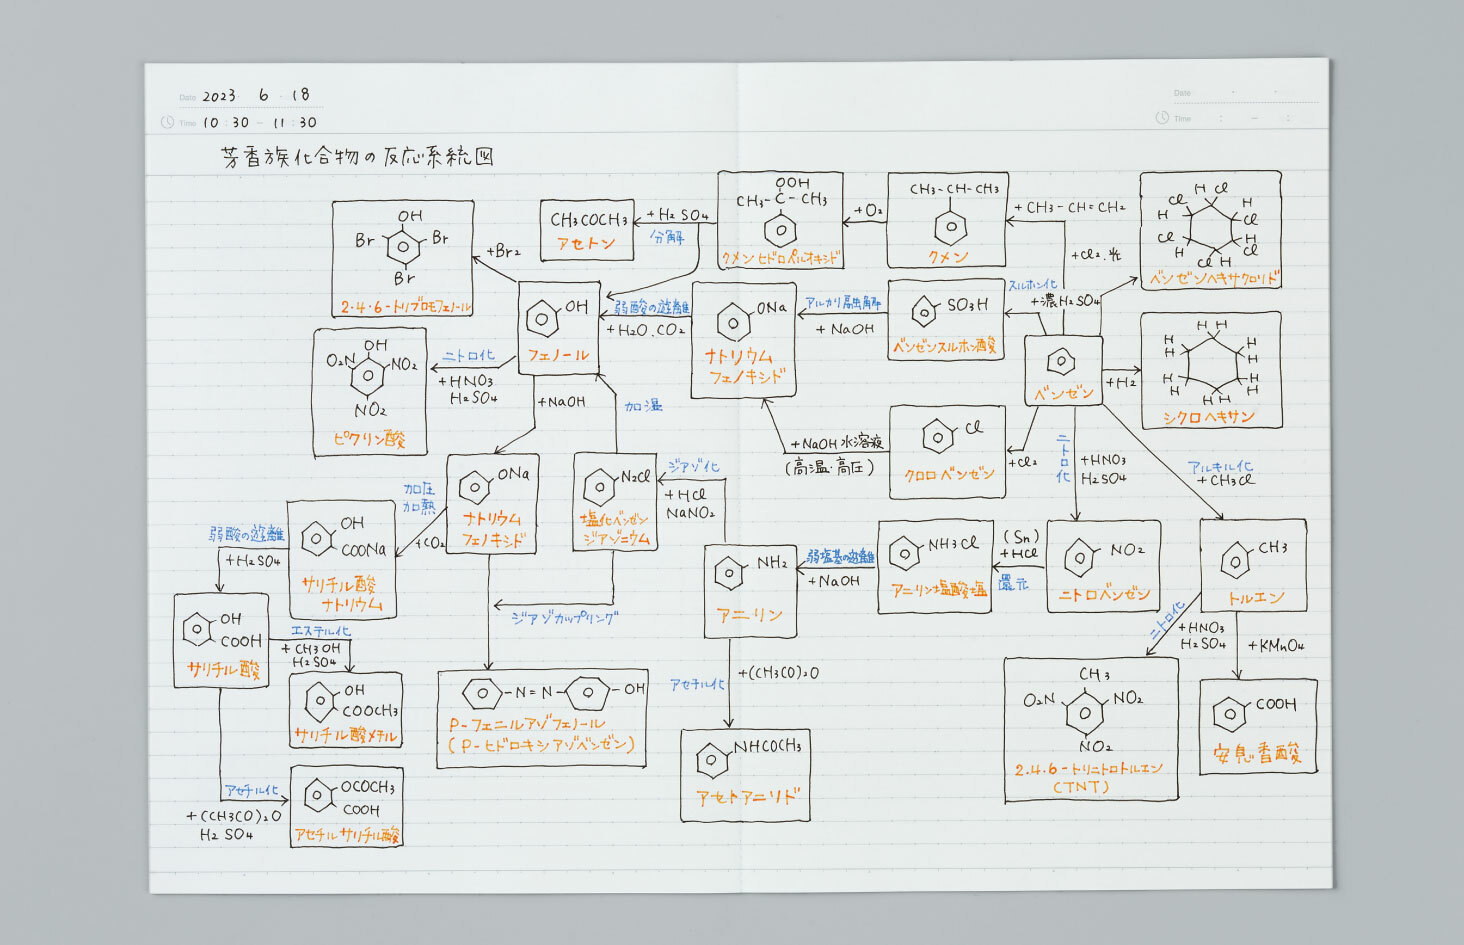 Date 2023 6 18
Time 10:30 - 11:30
Date
Time : - :
芳香族化合物の反応系統図
OH
Br
Br
Br
2.4.6-トリブロモフェノール
+Br2
CH3COCH3
アセトン
+H2SO4
分解
OOH
CH3-C-CH3
クメンヒドロペルオキシド
+O2
CH3-CH-CH3
クメン
+CH3-CH=CH2
+Cl2.光
H Cl
Cl H
H Cl
Cl H
H Cl
Cl H
ベンゼンヘキサクロリド
OH
O2N
NO2
NO2
ピクリン酸
ニトロ化
+HNO3
H2SO4
OH
フェノール
弱酸の遊離
+H2O.CO2
ONa
ナトリウム
フェノキシド
アルカリ融解
+NaOH
SO3H
ベンゼンスルホン酸
スルホン化
+濃H2SO4
ベンゼン
+H2
H H
H H
H H
H H
H H
H H
シクロヘキサン
+NaOH
加温
+NaOH水溶液
(高温・高圧)
Cl
クロロベンゼン
+Cl2
ニトロ化
+HNO3
H2SO4
アルキル化
+CH3Cl
加圧
加熱
+CO2
ONa
ナトリウム
フェノキシド
N2Cl
塩化ベンゼン
ジアゾニウム
ジアゾ化
+HCl
NaNO2
弱酸の遊離
+H2SO4
OH
COONa
サリチル酸
ナトリウム
ジアゾカップリング
NH2
アニリン
弱塩基の遊離
+NaOH
NH3Cl
アニリン塩酸塩
(Sn)
+HCl
還元
NO2
ニトロベンゼン
CH3
トルエン
OH
COOH
サリチル酸
エステル化
+CH3OH
H2SO4
OH
COOCH3
サリチル酸メチル
-N=N-
-OH
P-フェニルアゾフェノール
(P-ヒドロキシアゾベンゼン)
アセチル化
+(CH3CO)2O
NHCOCH3
アセトアニリド
ニトロ化
+HNO3
H2SO4
+KMnO4
CH3
O2N
NO2
NO2
2.4.6-トリニトロトルエン
(TNT)
COOH
安息香酸
アセチル化
+(CH3CO)2O
H2SO4
OCOCH3
COOH
アセチルサリチル酸